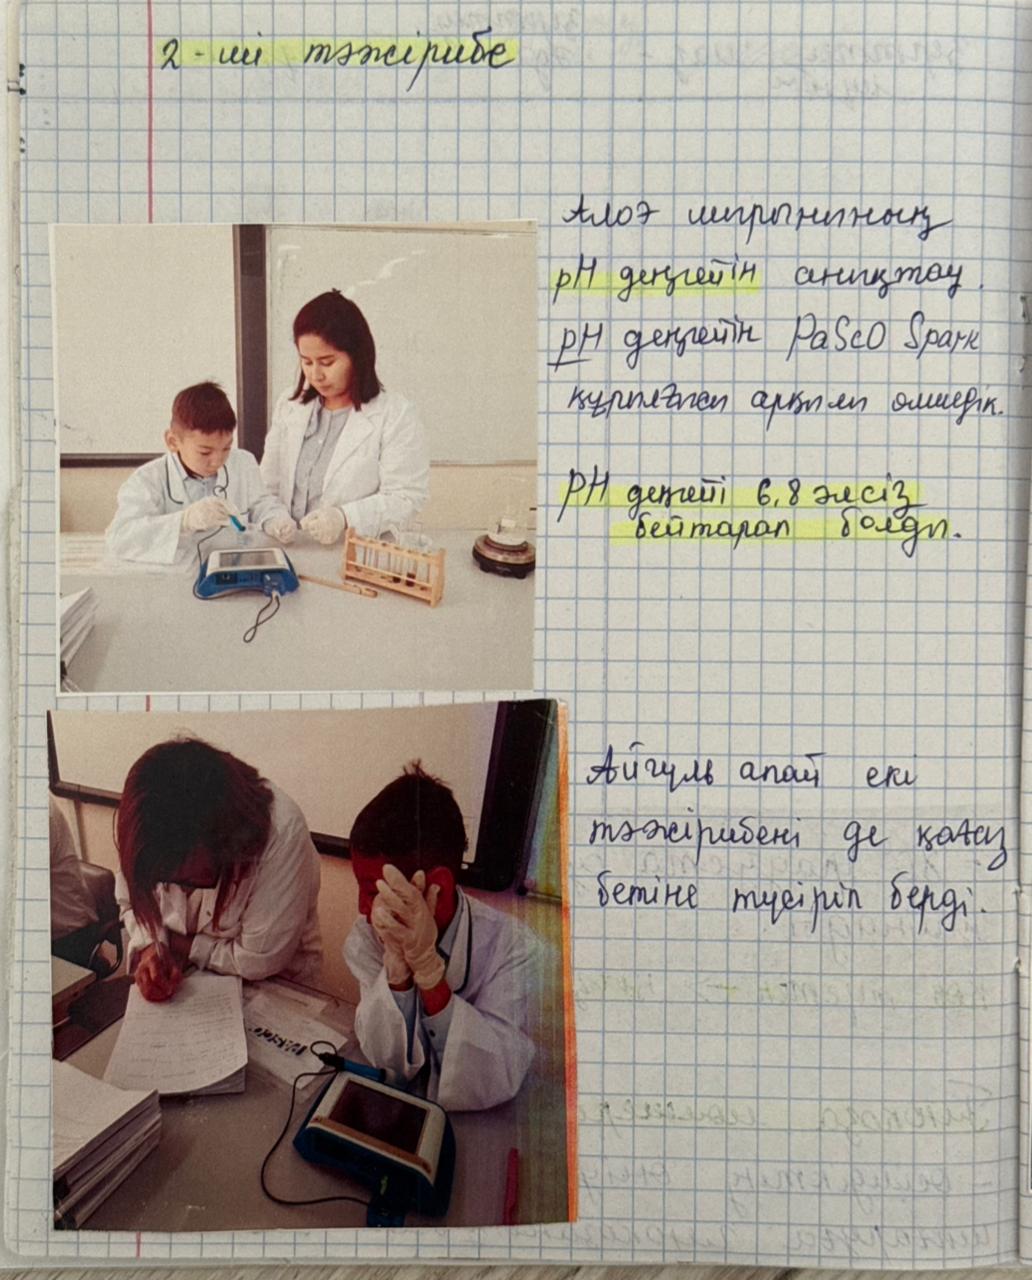 2-ші тәжірибе
Алоэ шырынының
pH деңгейін анықтау.
pH деңгейін PaScO Spark
құрылғысы арқылы өлшедік.
PH деңгейі 6,8 әлсіз
бейтарап болды.
Айгүль апай екі
тәжірибені де қағаз
бетіне түсіріп берді.